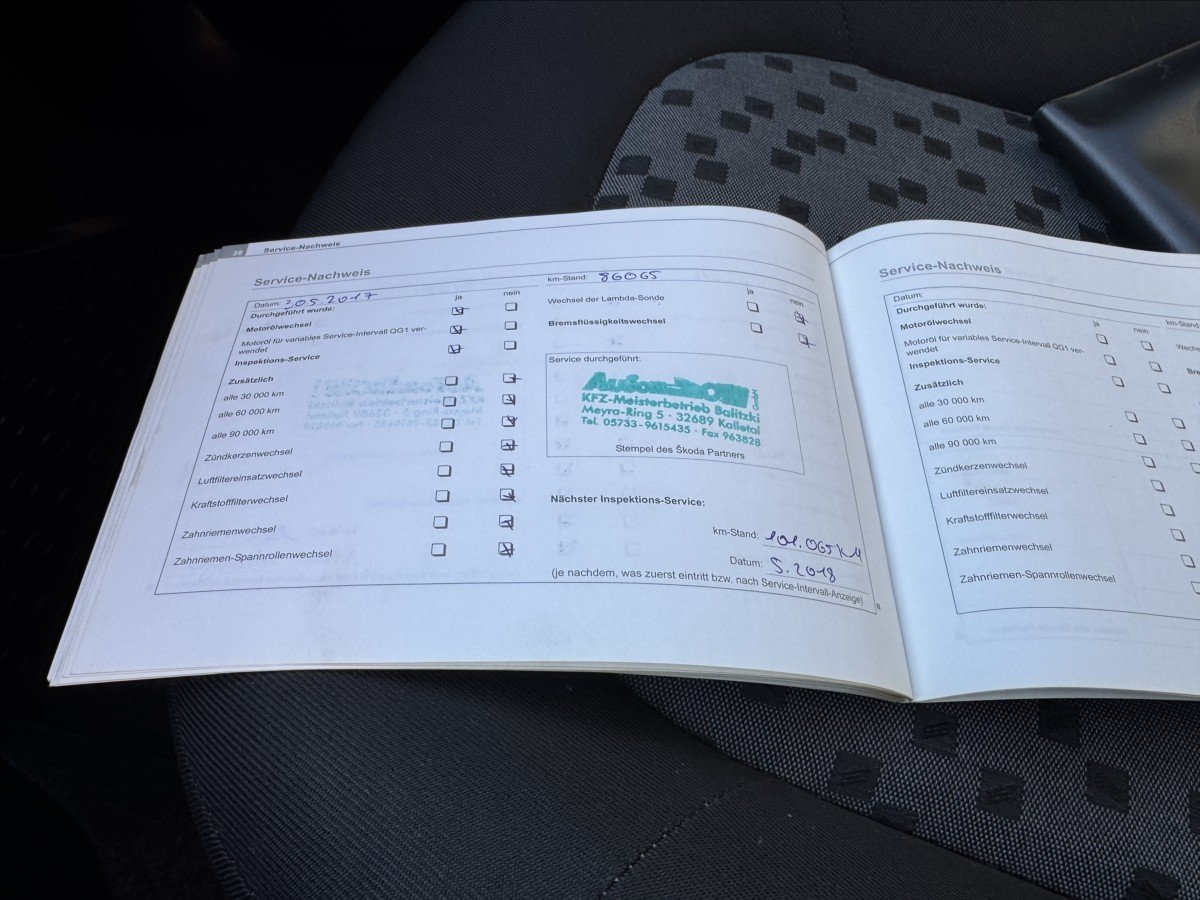 28 Service-Nachweis
Service-Nachweis
Datum: 2.05.2017
ja nein
Durchgeführt wurde:
Motorölwechsel
Motoröl für variables Service-Intervall QG1 ver-
wendet
Inspektions-Service
Zusätzlich
alle 30 000 km
alle 60 000 km
alle 90 000 km
Zündkerzenwechsel
Luftfiltereinsatzwechsel
Kraftstofffilterwechsel
Zahnriemenwechsel
Zahnriemen-Spannrollenwechsel
km-Stand: 86065
ja nein
Wechsel der Lambda-Sonde
Bremsflüssigkeitswechsel
Service durchgeführt:
GmbH
KFZ-Meisterbetrieb Balitzki
Meyra-Ring 5 · 32689 Kalletal
Tel. 05733-9615435 · Fax 963828
Stempel des Škoda Partners
Nächster Inspektions-Service:
km-Stand: 101.065 KM
Datum: 5.2018
(je nachdem, was zuerst eintritt bzw. nach Service-Intervall-Anzeige)
Service-Nachweis
Datum:
Durchgeführt wurde:
ja nein
Motorölwechsel
Motoröl für variables Service-Intervall QG1 ver-
wendet
Inspektions-Service
Zusätzlich
alle 30 000 km
alle 60 000 km
alle 90 000 km
Zündkerzenwechsel
Luftfiltereinsatzwechsel
Kraftstofffilterwechsel
Zahnriemenwechsel
Zahnriemen-Spannrollenwechsel
km-Stand